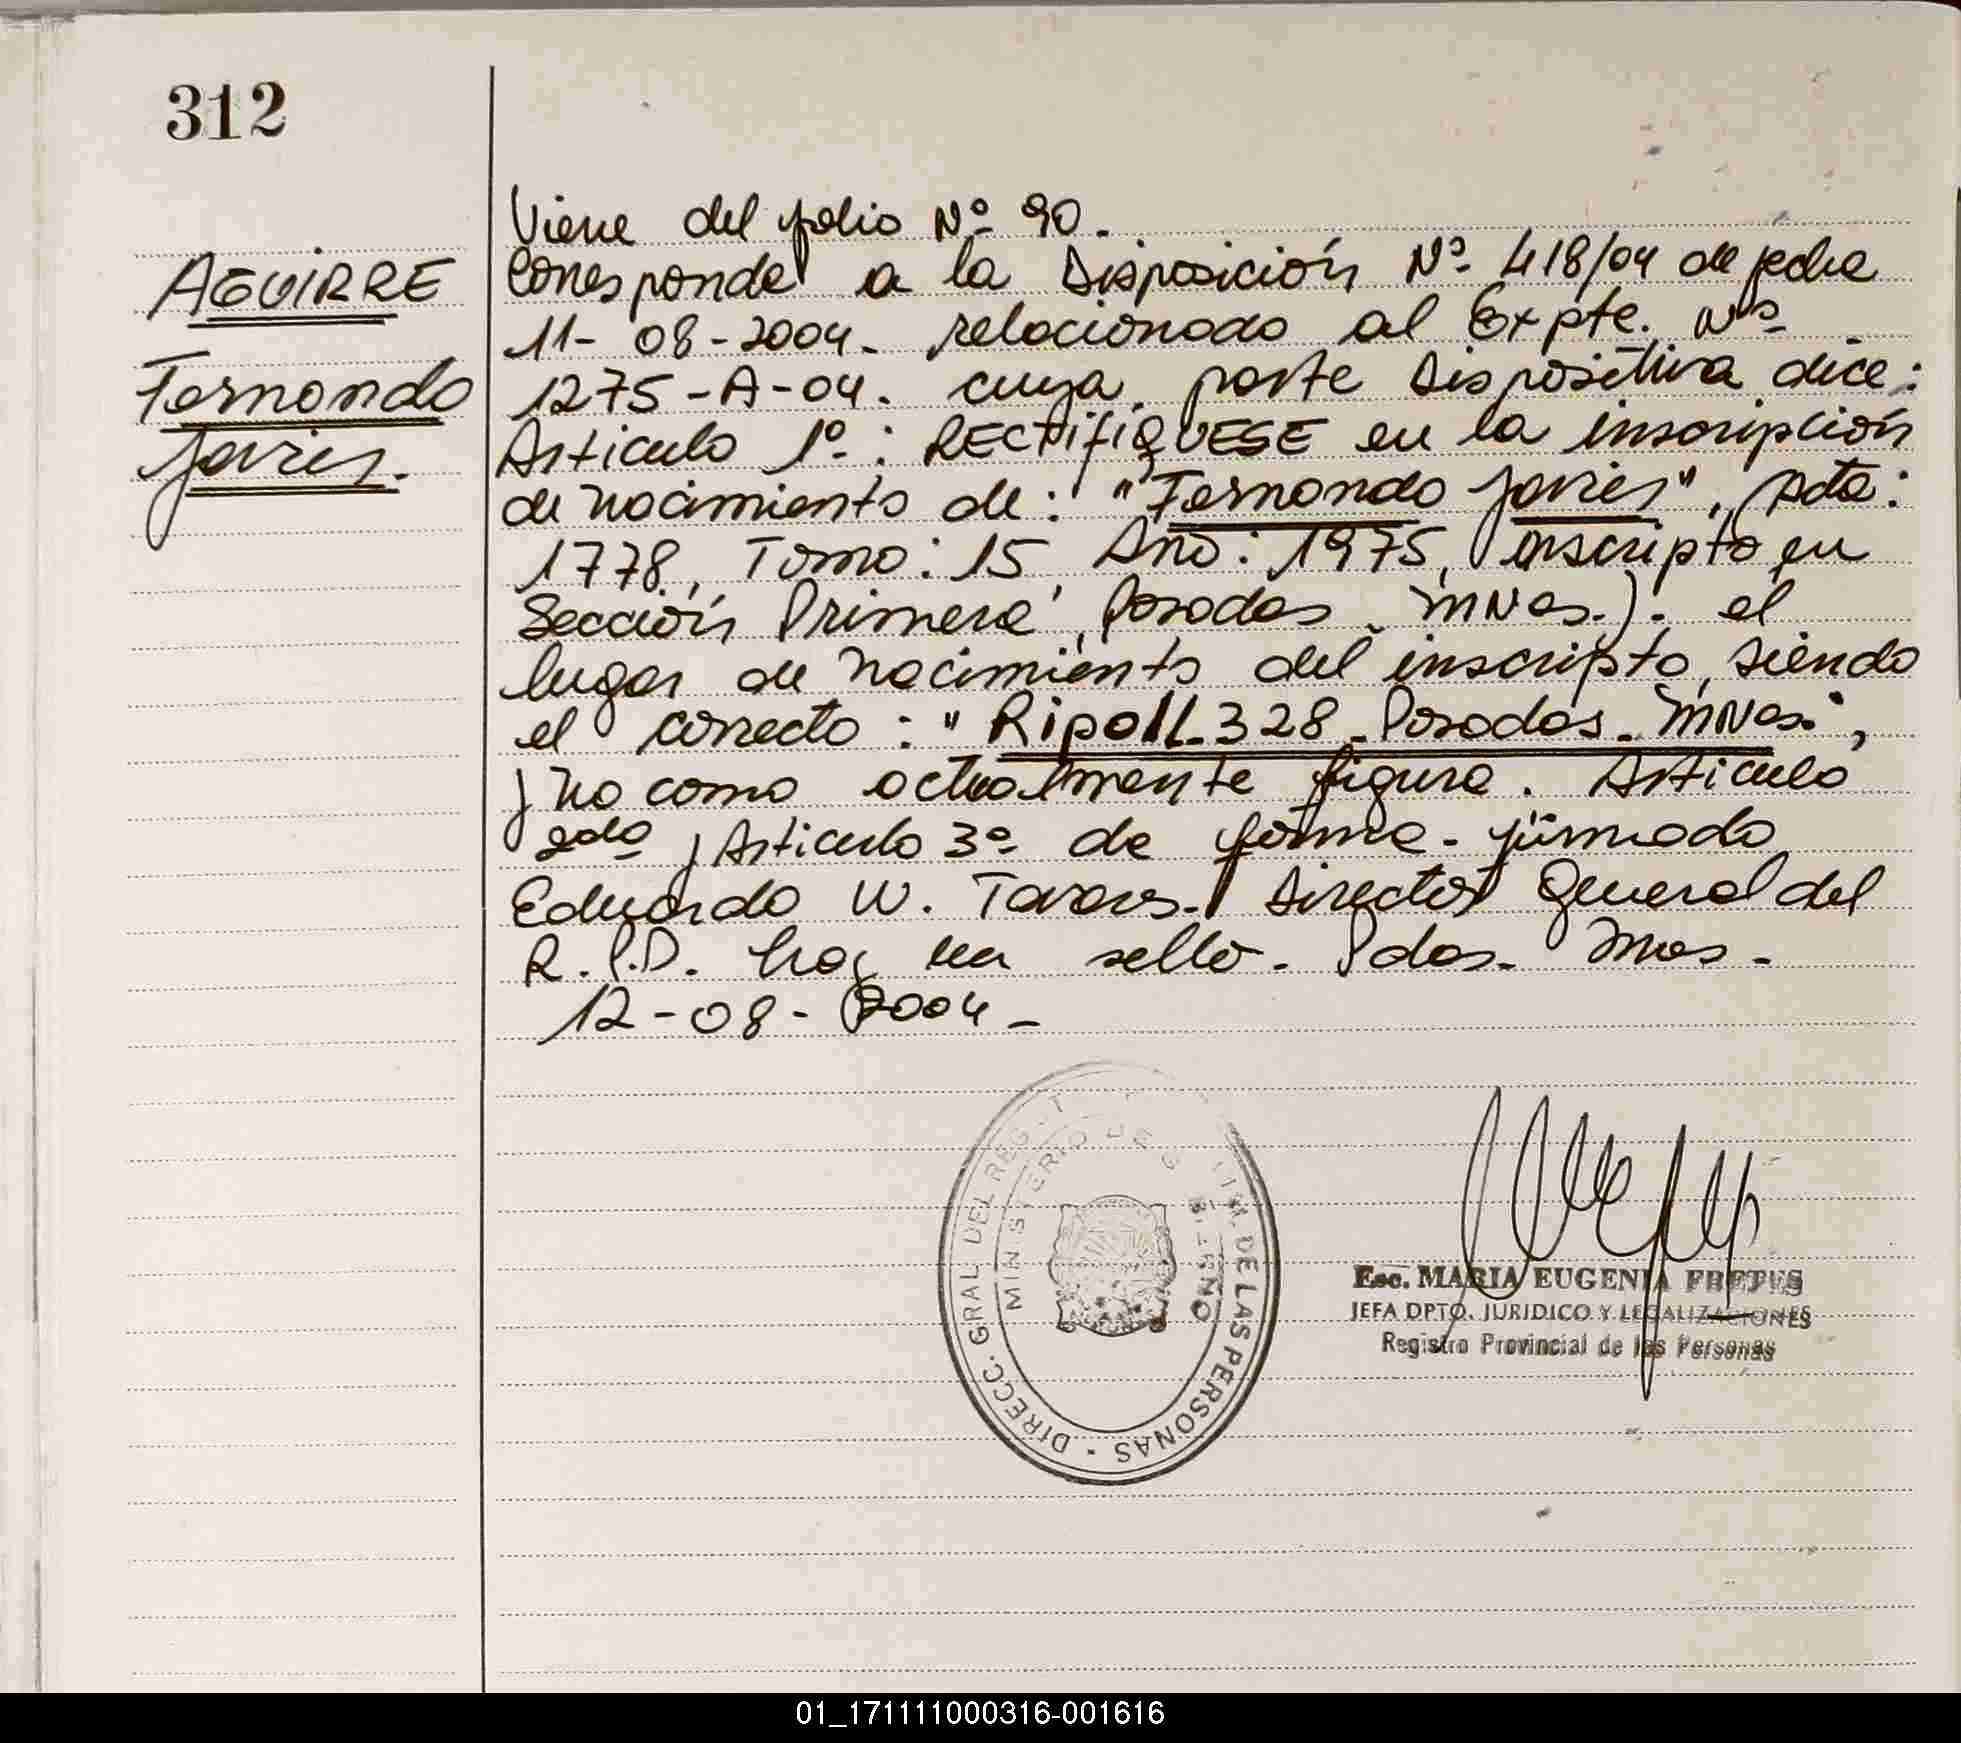 312
AGUIRRE
Fernando
Javier.
Viene del folio Nº 90.
Corresponde a la Disposición Nº 418/04 de fecha
11-08-2004. relacionado al Expte. Nº
1275-A-04. cuya parte Dispositiva dice:
Articulo 1º: RECTIFIQUESE en la inscripción
de nacimiento de: "Fernando Javier", Acta:
1778, Tomo: 15, Año: 1975, inscripto en
Sección Primera, Posadas. MNes.). el
lugar de nacimiento del inscripto, siendo
el correcto: "Ripoll. 328 - Posadas - MNes.",
y no como actualmente figura. Articulo
2do y Articulo 3º de forma. firmado
Eduardo W. Director General del
R.P.P. hay un sello. Pdas. Mnes.
12-08-2004-
DIRECC. GRAL DEL REG. DE LAS PERSONAS
MINISTERIO DE GOBIERNO
Esc. MARIA EUGENIA FRETES
JEFA DPTO. JURIDICO Y LEGALIZACIONES
Registro Provincial de las Personas
01_171111000316-001616